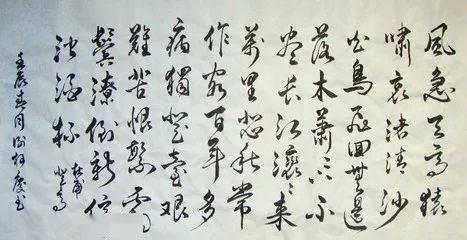 風急天高猿
嘯哀渚清沙
白鳥飛回無邊
落木蕭〻下不
盡長江滾〻來
萬里悲秋常
作客百年多
病獨登臺艱
難苦恨繁霜
鬢潦倒新停
濁酒杯
杜甫
登高
壬辰春月書